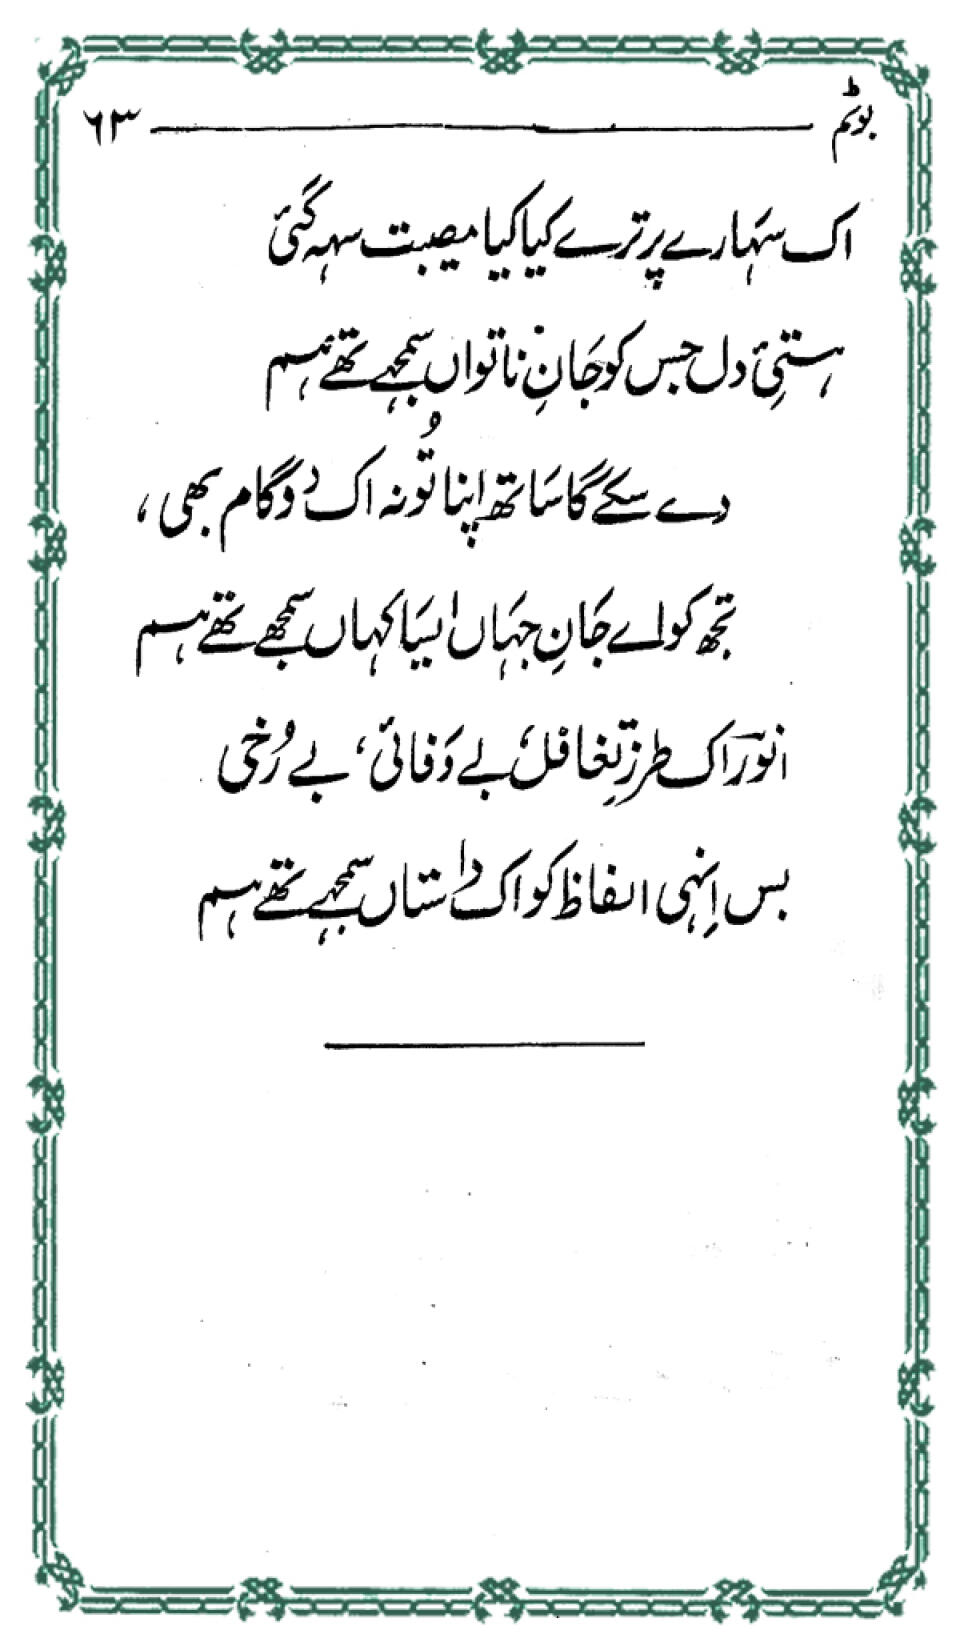 بوٹم ۶۳
اک سہارے پر ترے کیا کیا مصیبت سہہ گئی
ہستیٔ دل جس کو جانِ ناتواں سمجھے تھے ہم
دے سکے گا ساتھ اپنا تُو نہ اک دو گام بھی،
تجھ کو اے جانِ جہاں ایسا کہاں سمجھے تھے ہم
انورؔ اک طرزِ تغافل، بے وفائی، بے رُخی
بس اِنہی الفاظ کو اک داستاں سمجھے تھے ہم